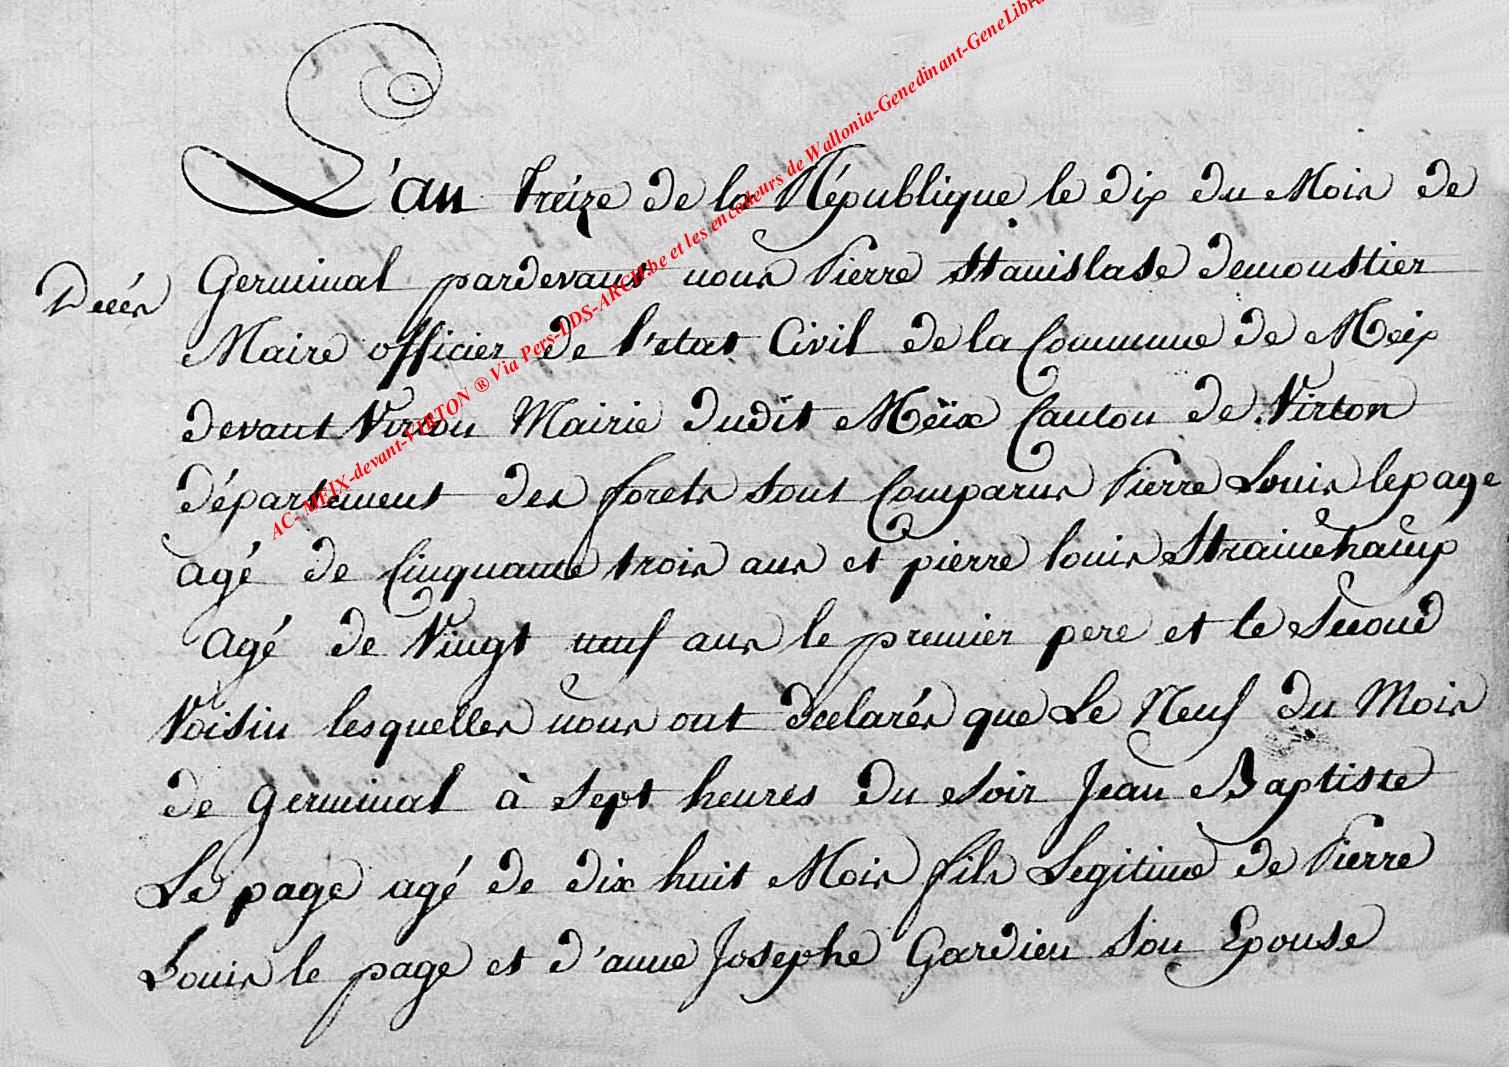 L'an treize de la République le dix du Mois de
Décés
Germinal pardevant nous Pierre Stanislase demoustier
Maire officier de l'etat Civil de la Commune de Meix
devant Virton Mairie dudit Meïx Canton de Virton
département des forets sont Comparus Pierre Louis lepage
agé de Cinquante trois ans et pierre louis Strainchamp
agé de Vingt neuf ans le premier pere et le Second
Voisin lesquelles nous ont declarés que Le Neuf du Mois
de Germinal à Sept heures du Soir Jean Baptiste
Le page agé de dix huit Mois fils Legitime de Pierre
Louis le page et d'anne Josephe Gardien Son Epouse
AC- MEIX-devant-VIRTON ® Via Pers-LDS-ARCH.be et les encodeurs de Wallonia-Genedinant-GeneLibra